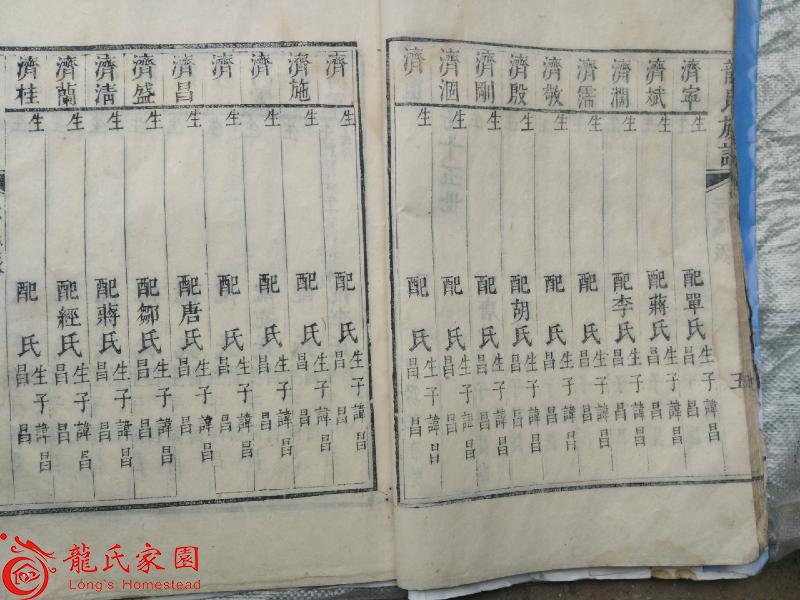 龍氏族譜
五
濟寧 生 配單氏 生子諱昌 昌 昌
濟斌 生 配蔣氏 生子諱昌 昌 昌
濟 生 配李氏 生子諱昌 昌 昌
濟 生 配 氏 生子諱昌 昌 昌
濟敬 生 配 氏 生子諱昌 昌 昌
濟殷 生 配胡氏 生子諱昌 昌 昌
濟剛 生 配 氏 生子諱昌 昌 昌
濟涸 生 配 氏 生子諱昌 昌 昌
濟 生 配 氏 生子諱昌 昌 昌
濟 生 配 氏 生子諱昌 昌 昌
濟施 生 配 氏 生子諱昌 昌 昌
濟 生 配 氏 生子諱昌 昌 昌
濟 生 配 氏 生子諱昌 昌 昌
濟昌 生 配唐氏 生子諱昌 昌 昌
濟盛 生 配鄒氏 生子諱昌 昌 昌
濟清 生 配蔣氏 生子諱昌 昌 昌
濟蘭 生 配經氏 生子諱昌 昌 昌
濟桂 生 配 氏 生子諱昌 昌 昌
龍氏家園
Long's Homestead